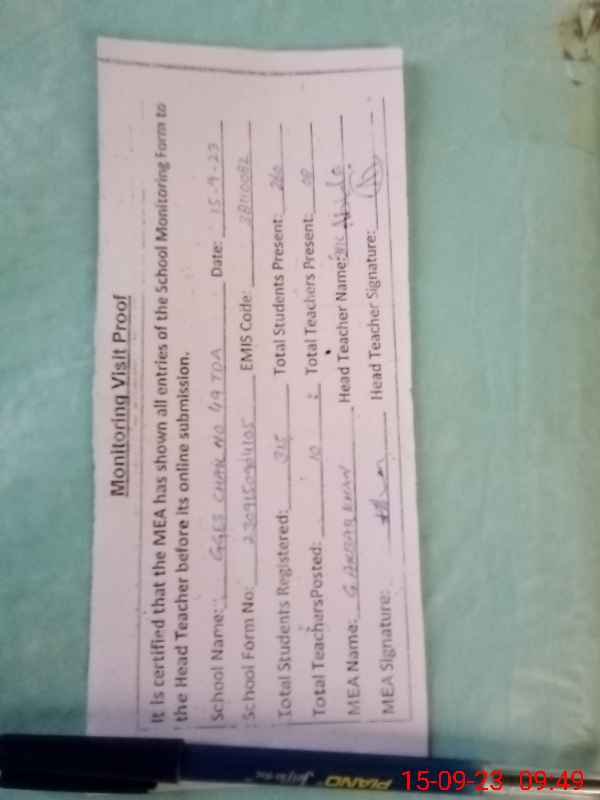 Monitoring Visit Proof
It is certified that the MEA has shown all entries of the School Monitoring Form to
the Head Teacher before its online submission.
School Name: GGES CHAK NO 49 TDA Date: 15-9-23
School Form No: EMIS Code:
Total Students Registered: 315 Total Students Present: 260
Total TeachersPosted: 10 Total Teachers Present: 08
MEA Name: G. AKBAR KHAN Head Teacher Name:
MEA Signature: Head Teacher Signature:
PIANO
15-09-23 09:49